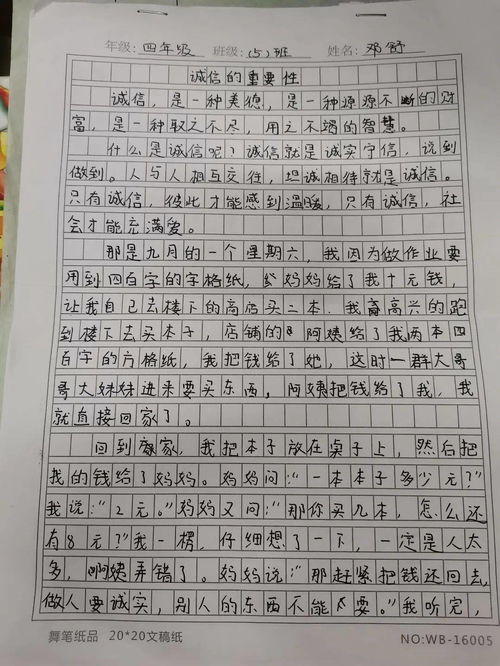 年级:四年级 班级:(5)班 姓名:邓舒
诚信的重要性
诚信,是一种美德,是一种源源不断的财
富,是一种取之不尽,用之不竭的智慧。
什么是诚信呢?诚信就是诚实守信,说到
做到。人与人相互交往,坦诚相待就是诚信。
只有诚信,彼此才能感到温暖,只有诚信,社
会才能充满爱。
那是九月的一个星期六,我因为做作业要
用到四百字的字格纸,妈妈给了我十元钱,
让我自己去楼下的商店买二本.我高兴的跑
到楼下去买本子,店铺的阿姨给了我两本四
百字的方格纸,我把钱给了她,这时一群大哥
哥大妹妹进来要买东西,阿姨把钱给了我,我
就直接回家了。
回到家,我把本子放在桌子上,然后把
我的钱给了妈妈。妈妈问:“一本本子多少元?”
我说:“2元。”妈妈又问:“那你买几本,怎么还
有8元?”我一楞,仔细想了一下,一定是人太
多,阿姨弄错了。妈妈说:“那赶紧把钱还回去,
做人要诚实,别人的东西不能要。”我听完,
舞笔纸品 20*20文稿纸 NO:WB-16005